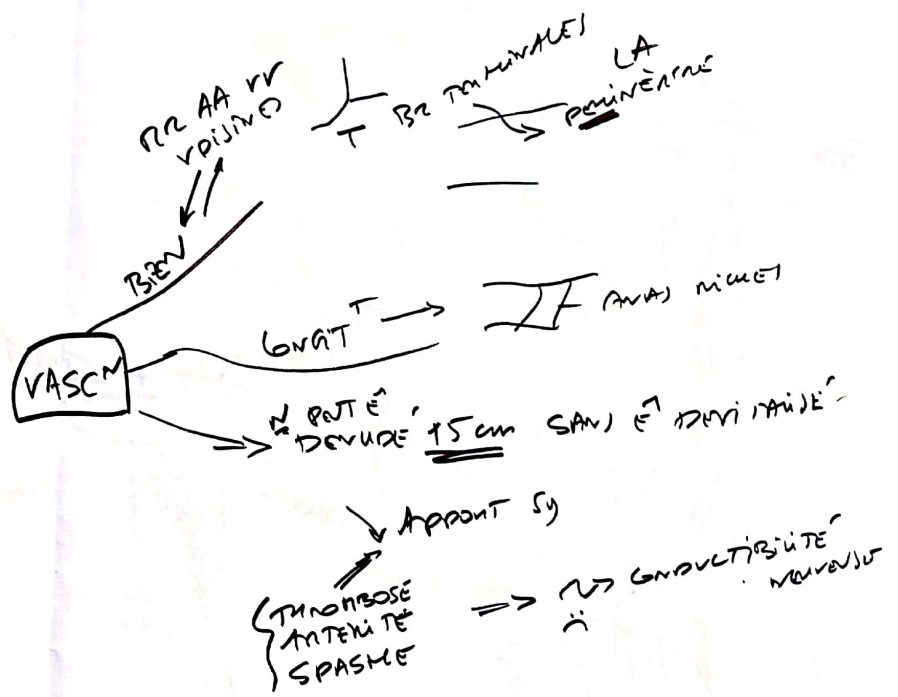 RR AA VV
VOISINS
T
BR TERMINALES
LA
PERINÈVRE
BIEN
LONGIT T
ANAS RICHES
VASC N
N PEUT Ê
DENUDÉ 15 cm SANS Ê DEVITALISÉ
APPORT Sy
THROMBOSE
ARTERITE
SPASME
CONDUCTIBILITÉ
NERVEUSE